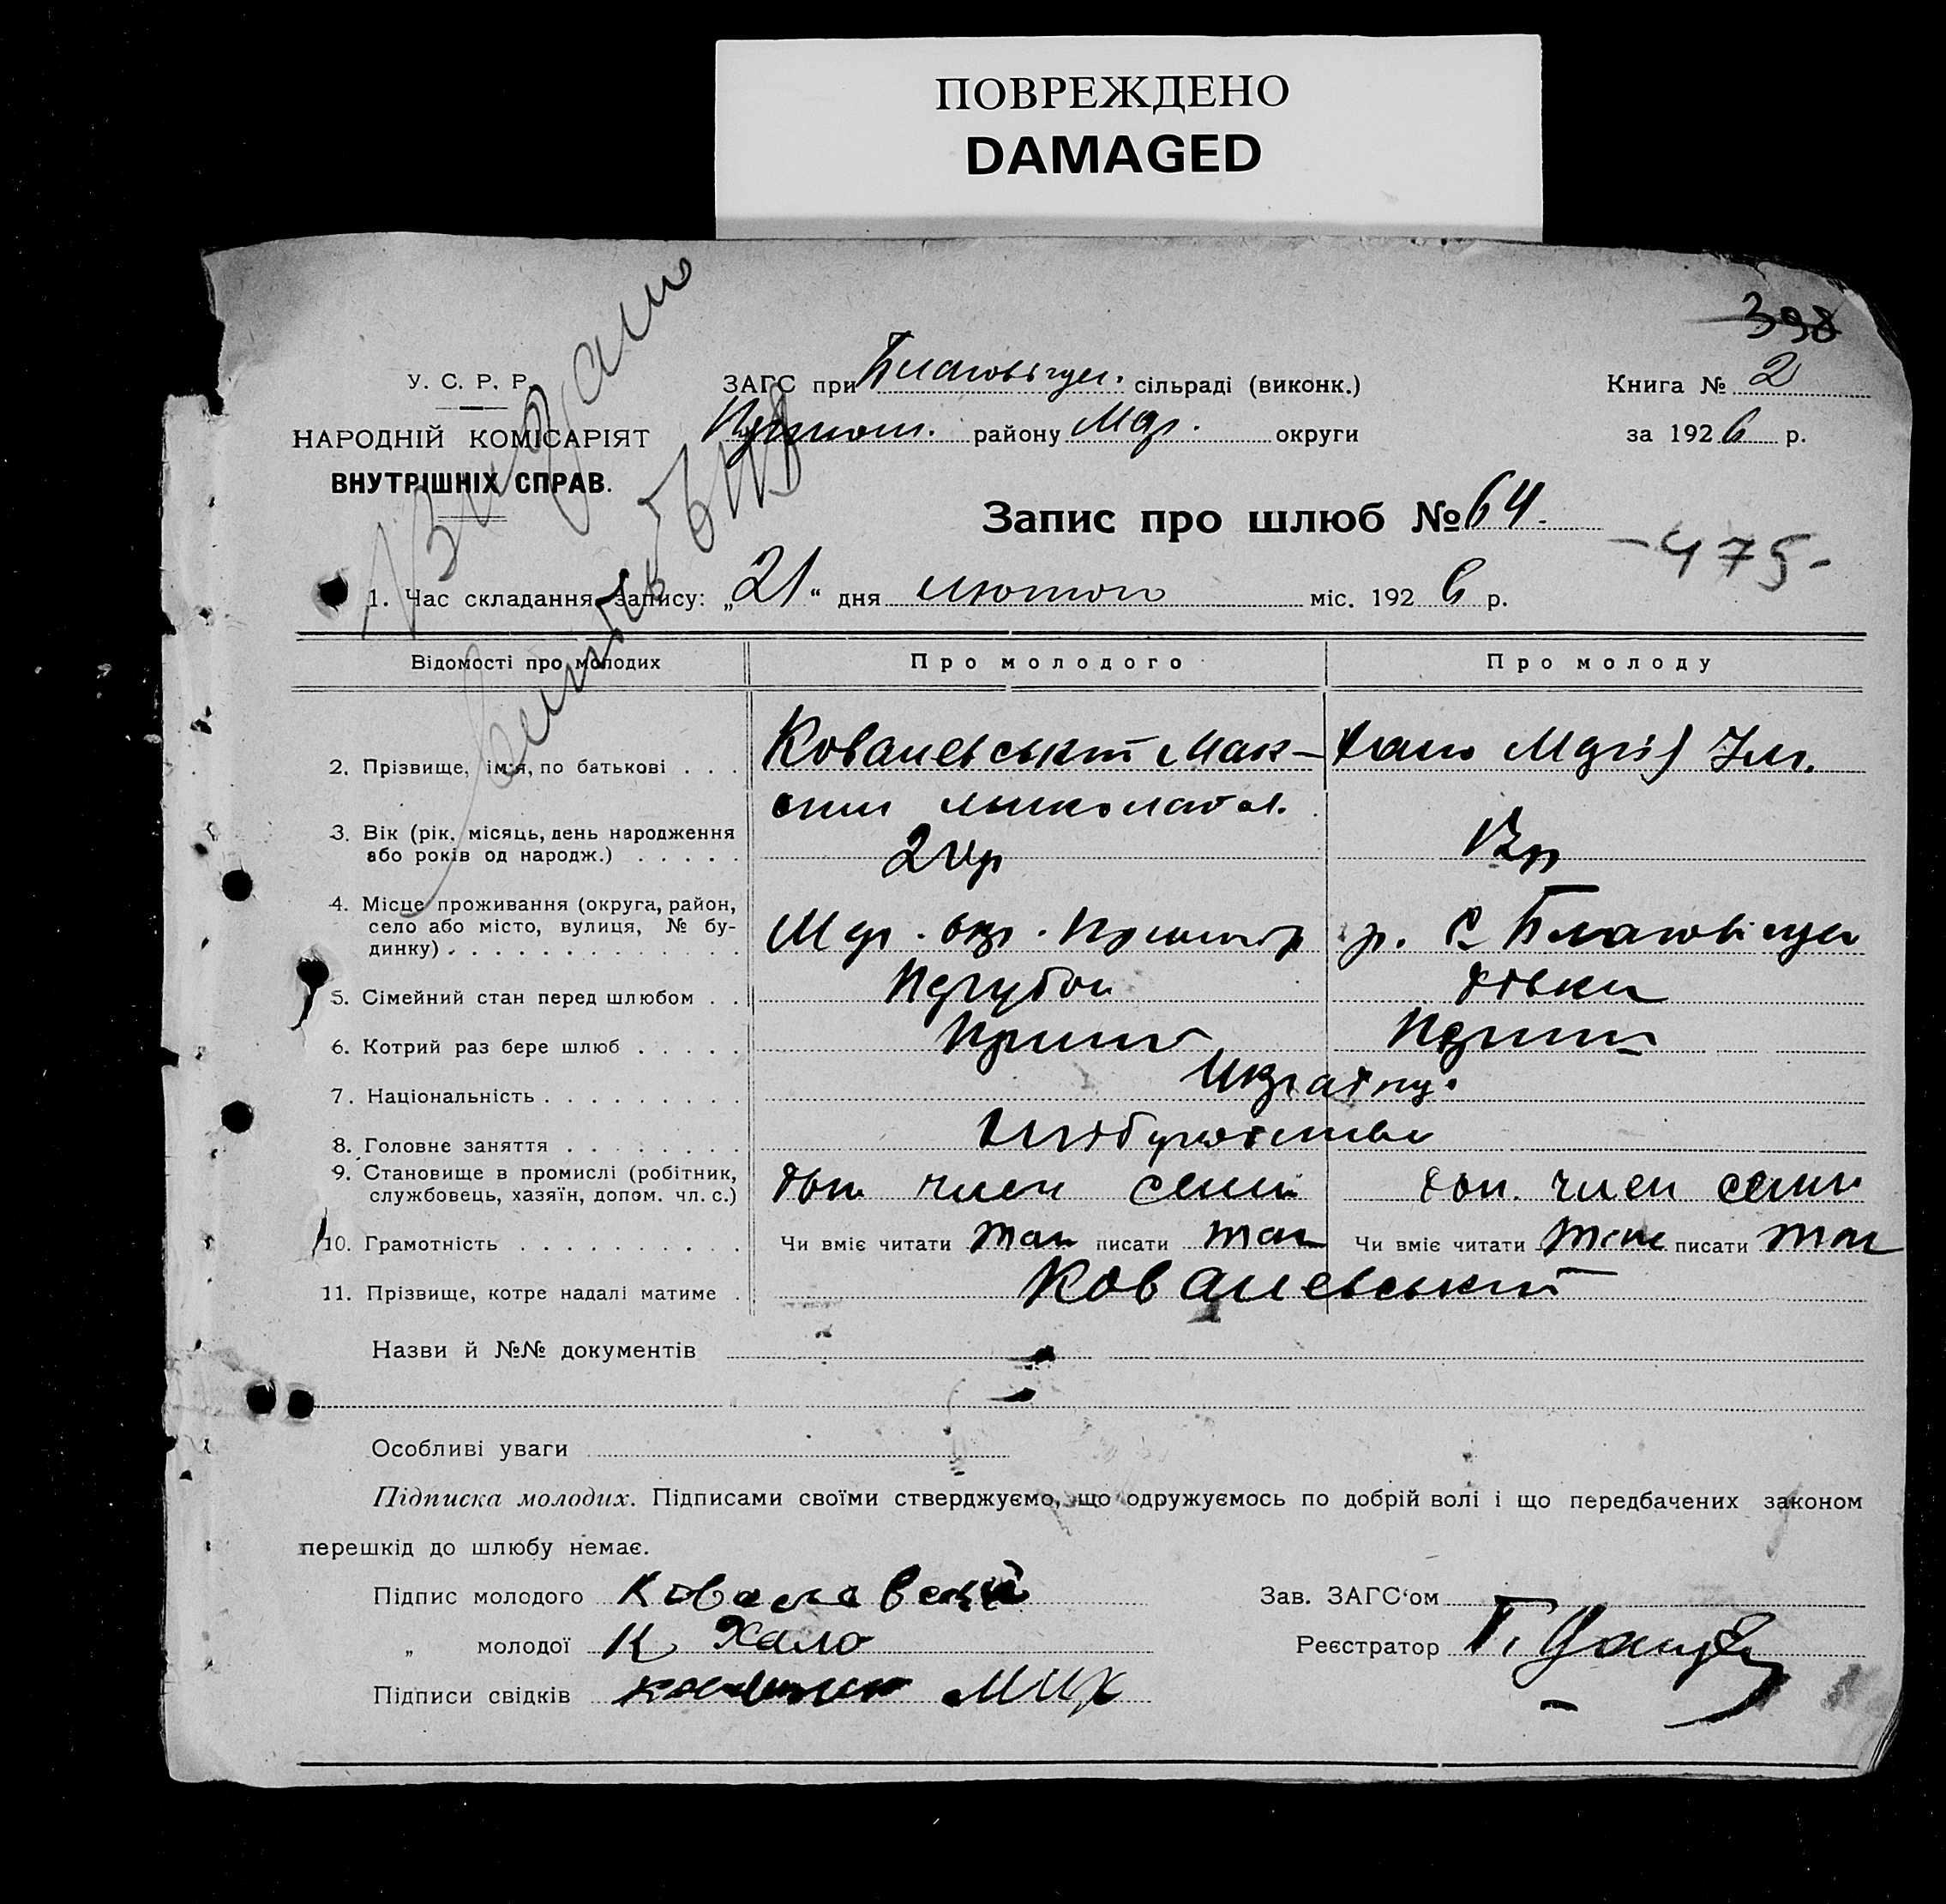 ПОВРЕЖДЕНО
DAMAGED
398
У. С. Р. Р.
НАРОДНІЙ КОМІСАРІЯТ
ВНУТРІШНІХ СПРАВ.
ЗАГС при Благовіщен. сільраді (виконк.)
району округи
Книга № 2
за 1926 р.
Запис про шлюб № 64.
-475-
1. Час складання запису: „21“ дня лютого міс. 1926 р.
Відомості про молодих Про молодого Про молоду
2. Прізвище, ім'я, по батькові . . . Ковалевський Мак-
сим Миколаєв.
3. Вік (рік, місяць, день народження
або років од народж.) . . . . .
4. Місце проживання (округа, район,
село або місто, вулиця, № бу-
динку) . . . . . . . . . . . . . р. С. Благовіщен
5. Сімейний стан перед шлюбом . . Парубок Дівка
6. Котрий раз бере шлюб . . . . . Перший Перший
7. Національність . . . . . . . . . Україну.
8. Головне заняття . . . . . . . . Хліборобство
9. Становище в промислі (робітник,
службовець, хазяїн, допом. чл. с.) доп. член семьи доп. член семьи
10. Грамотність . . . . . . . . . . Чи вміє читати так писати так Чи вміє читати так писати так
11. Прізвище, котре надалі матиме . Ковалевський
Назви й №№ документів
Особливі уваги
Підписка молодих. Підписами своїми стверджуємо, що одружуємось по добрій волі і що передбачених законом
перешкід до шлюбу немає.
Підпис молодого Ковалевский Зав. ЗАГС'ом
„ молодої К Хало Реєстратор
Підписи свідків